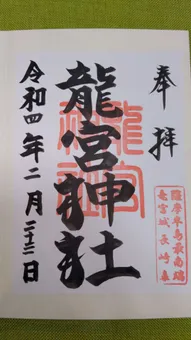 奉拝
龍宮神社
龍宮神社
薩摩半島最南端
竜宮城長崎鼻
令和四年二月二十三日